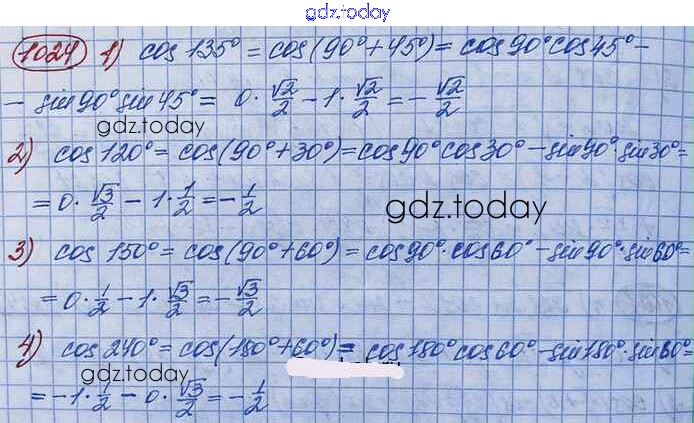 gdz.today
1024 1) cos 135° = cos(90°+45°) = cos 90° cos 45° −
− sin 90° sin 45° = 0 · √2/2 − 1 · √2/2 = − √2/2
gdz.today
2) cos 120° = cos(90°+30°) = cos 90° cos 30° − sin 90° · sin 30° =
= 0 · √3/2 − 1 · 1/2 = − 1/2
gdz.today
3) cos 150° = cos(90°+60°) = cos 90° · cos 60° − sin 90° · sin 60° =
= 0 · 1/2 − 1 · √3/2 = − √3/2
4) cos 240° = cos(180°+60°) = cos 180° cos 60° − sin 180° · sin 60° =
gdz.today
= −1 · 1/2 − 0 · √3/2 = − 1/2